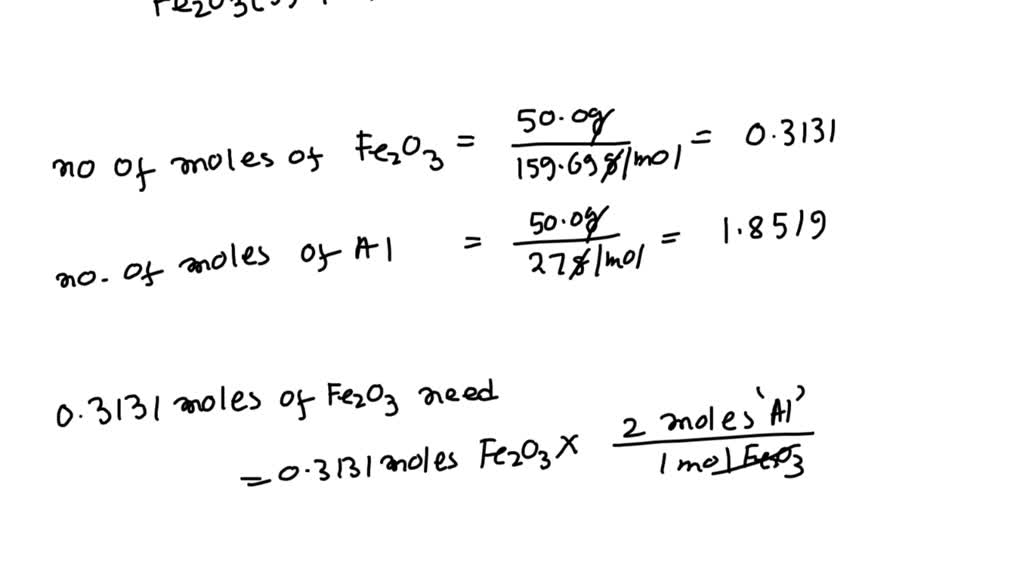 Fe2O3(s)
no of moles of Fe2O3 = 50.0g / 159.69g/mol = 0.3131
no. of moles of Al = 50.0g / 27g/mol = 1.8519
0.3131 moles of Fe2O3 need
= 0.3131 moles Fe2O3 × 2 moles 'Al' / 1 mol Fe2O3